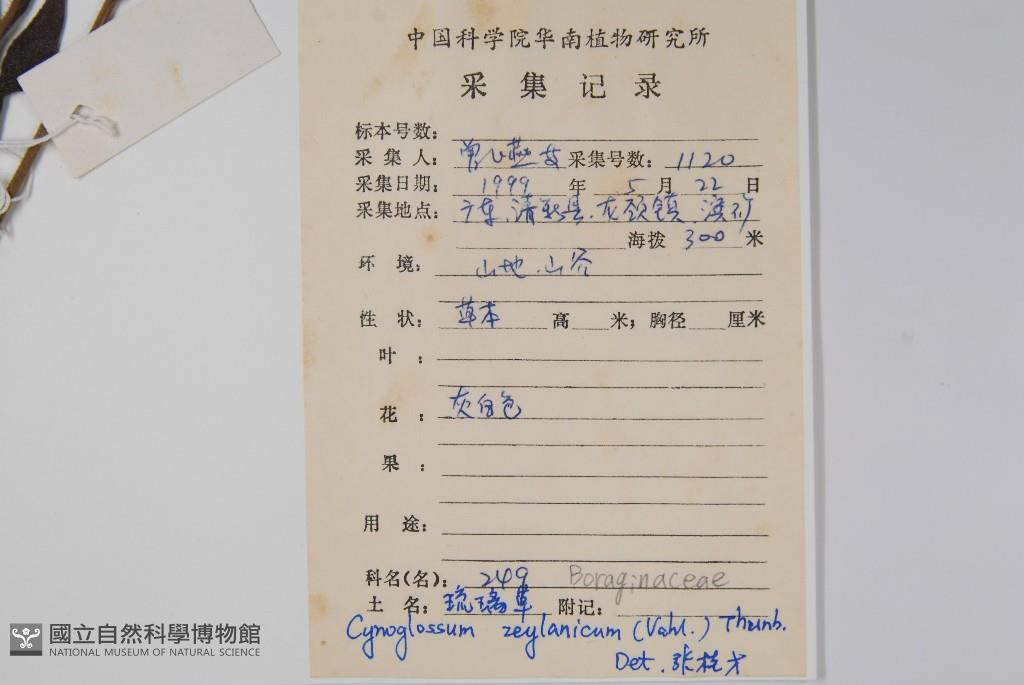 中国科学院华南植物研究所
采集记录
标本号数:
采集人: 曾 采集号数: 1120
采集日期: 1999 年 5 月 22 日
采集地点: 广东.清新县.龙颈镇.
海拨 300 米
环境: 山地.山谷
性状: 草本 高 米; 胸径 厘米
叶:
花: 灰白色
果:
用途:
科名(名): 249 Boraginaceae
土名: 琉璃草 附记:
Cynoglossum zeylanicum (Vahl.) Thunb.
Det. 张桂才
國立自然科學博物館
NATIONAL MUSEUM OF NATURAL SCIENCE